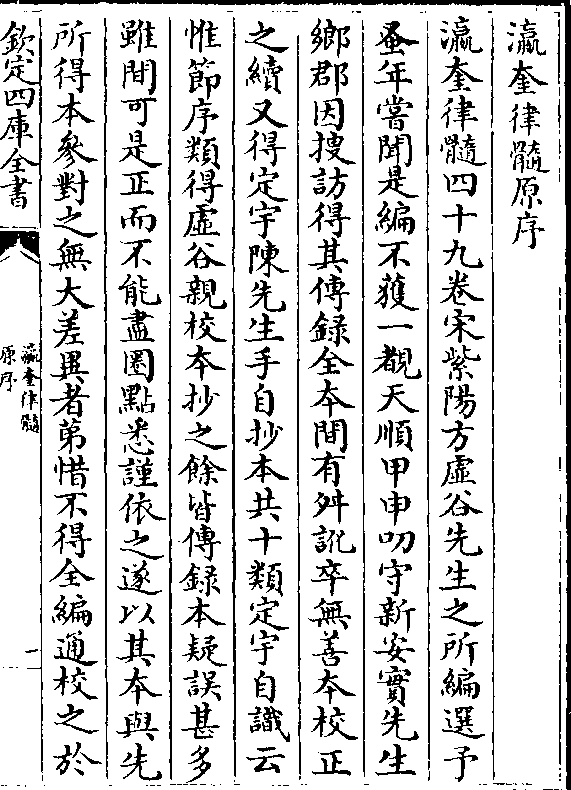 瀛奎律髓原序
瀛奎律髓四十九卷宋紫陽方虛谷先生之所編選予
蚤年嘗聞是編不獲一覩天順甲申叨守新安實先生
鄉郡因搜訪得其傳錄全本間有舛訛卒無善本校正
之續又得定宇陳先生手自抄本共十類定宇自識云
惟節序類得虛谷親校本抄之餘皆傳錄本疑誤甚多
雖間可是正而不能盡圈點悉謹依之遂以其本與先
所得本參對之無大差異者苐惜不得全編通校之於
欽定四庫全書
瀛奎律髓
原序
一